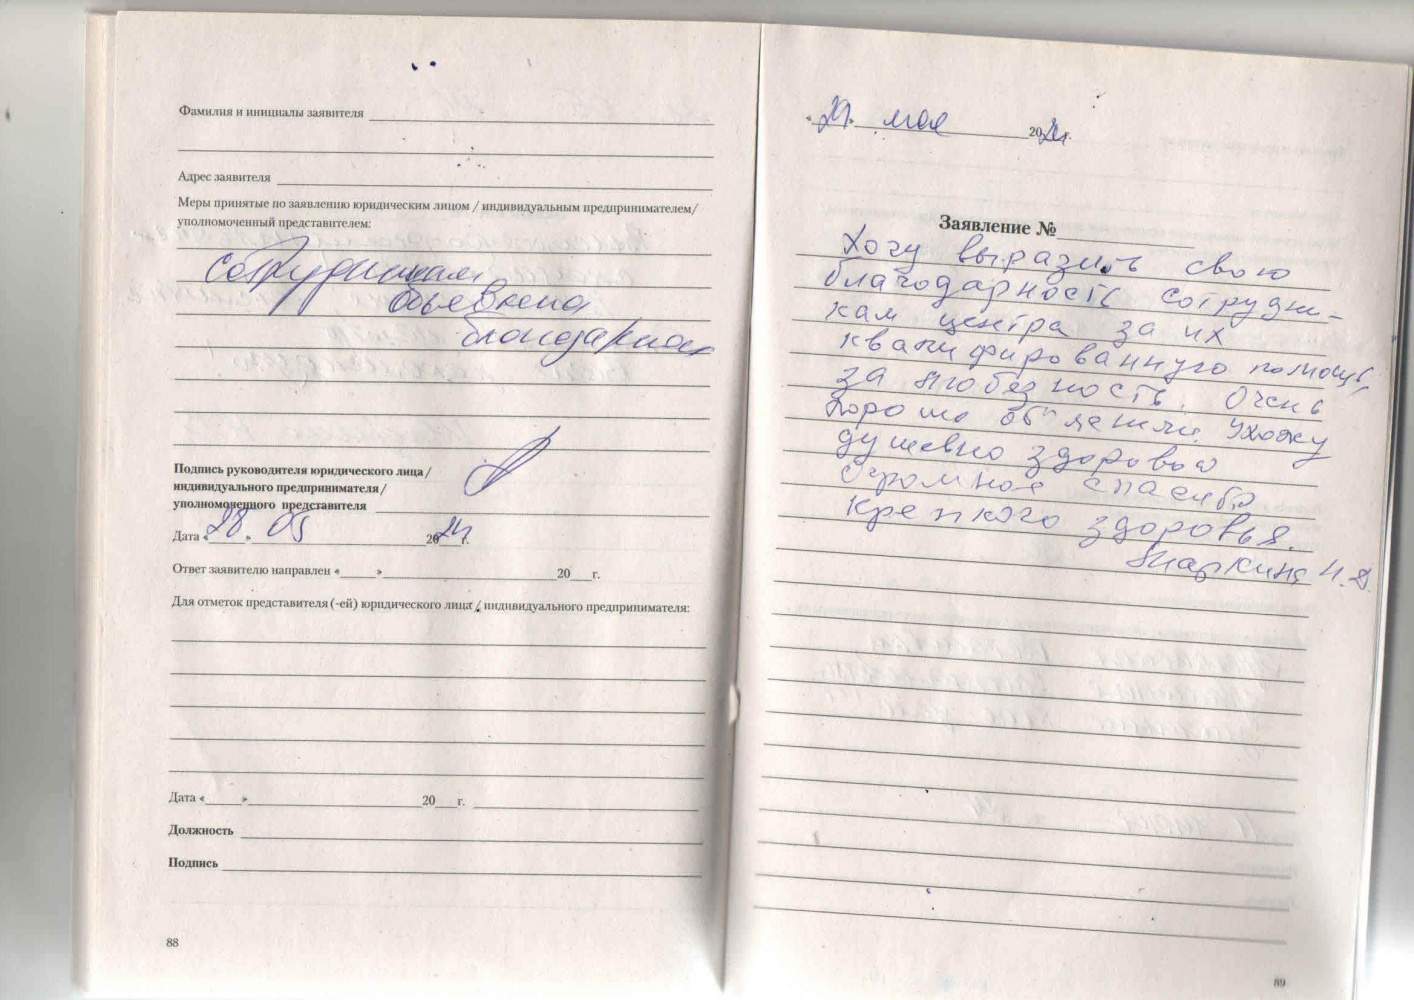 Фамилия и инициалы заявителя
Адрес заявителя
Меры принятые по заявлению юридическим лицом / индивидуальным предпринимателем/
уполномоченный представителем:
сотрудникам
объявлена
благодарность
Подпись руководителя юридического лица /
индивидуального предпринимателя /
уполномоченного представителя
Дата «28.» 05 2024 г.
Ответ заявителю направлен «____»____ 20__г.
Для отметок представителя (-ей) юридического лица / индивидуального предпринимателя:
Дата «____»____ 20__г.
Должность
Подпись
88
мая 20 г.
Заявление №
Хочу выразить свою
благодарность сотрудни-
кам центра за их
квалифированную помощь,
за любезность. Очень
хорошо объяснили. Ухожу
душевно здоровой
Огромное спасибо
Крепкого здоровья.
Н.
89